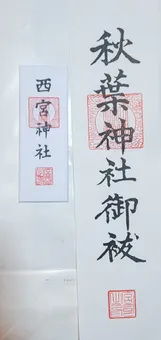 秋葉神社御祓
西宮神社